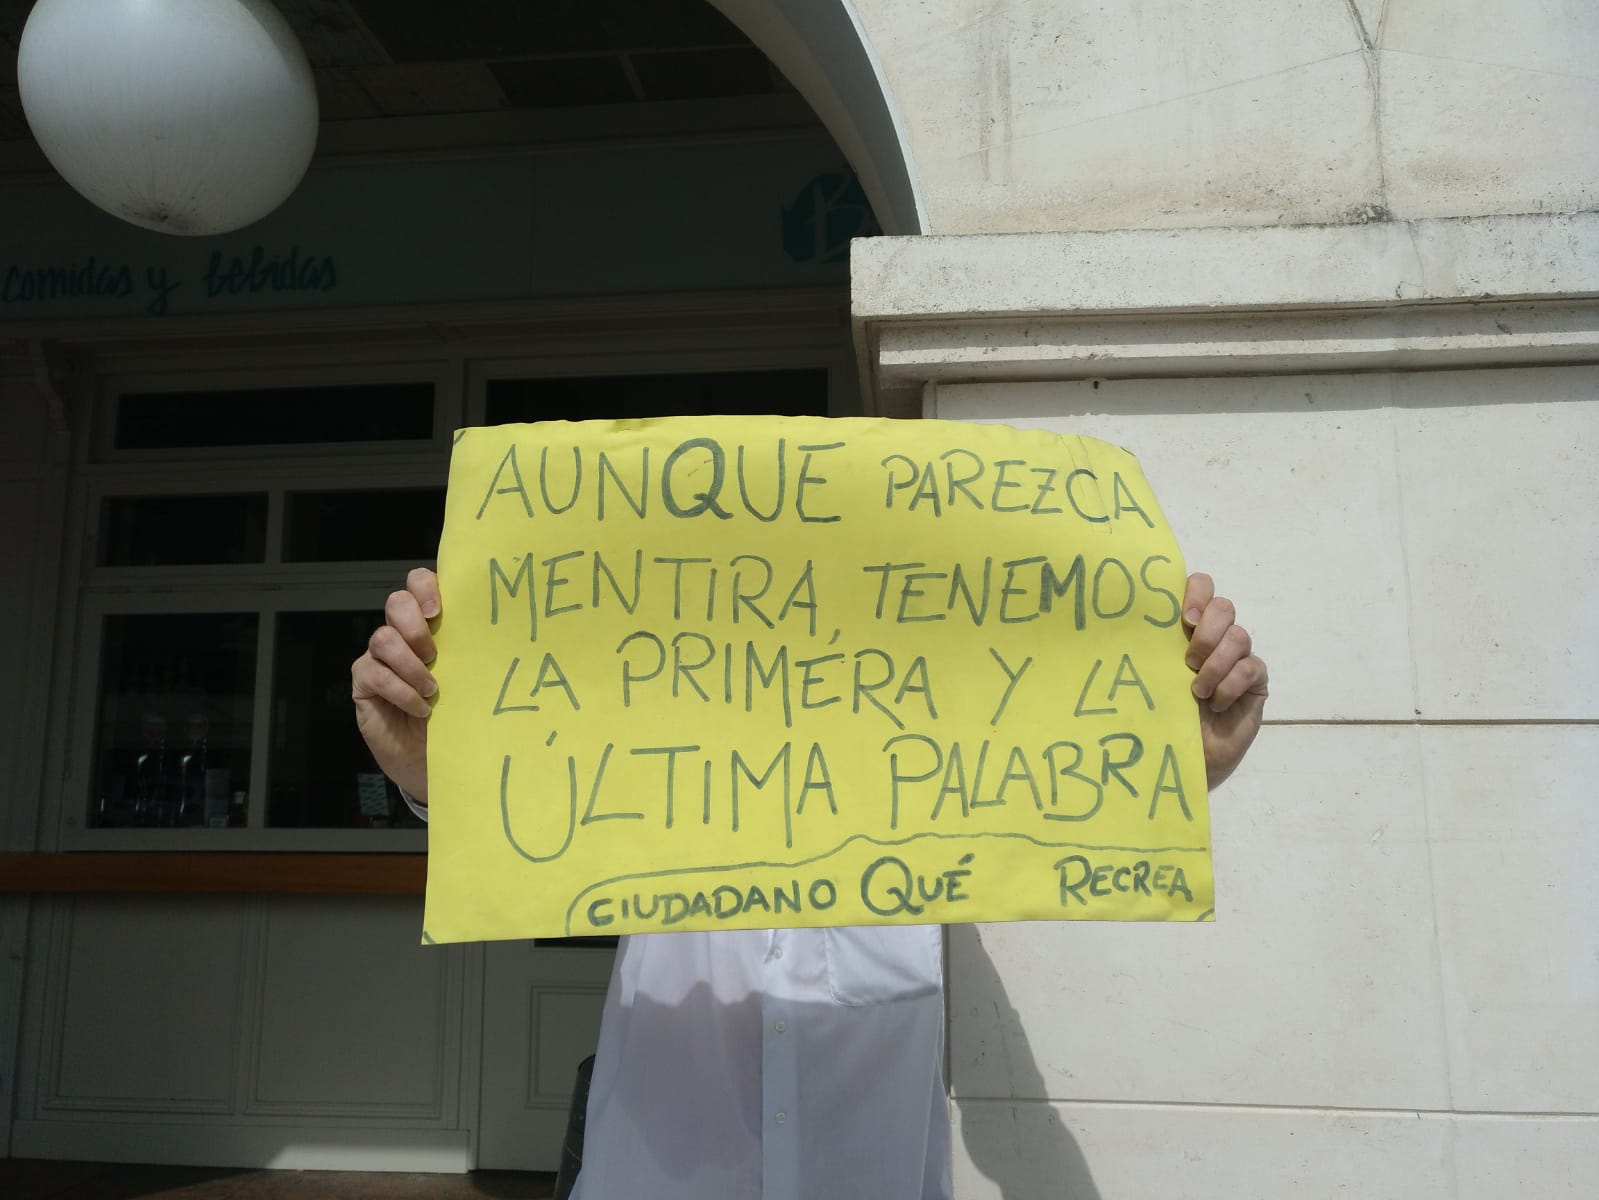 comidas y bebidas
B
AUNQUE PAREZCA
MENTIRA, TENEMOS
LA PRIMÉRA Y LA
ÚLTIMA PALABRA
CIUDADANO QUÉ RECREA